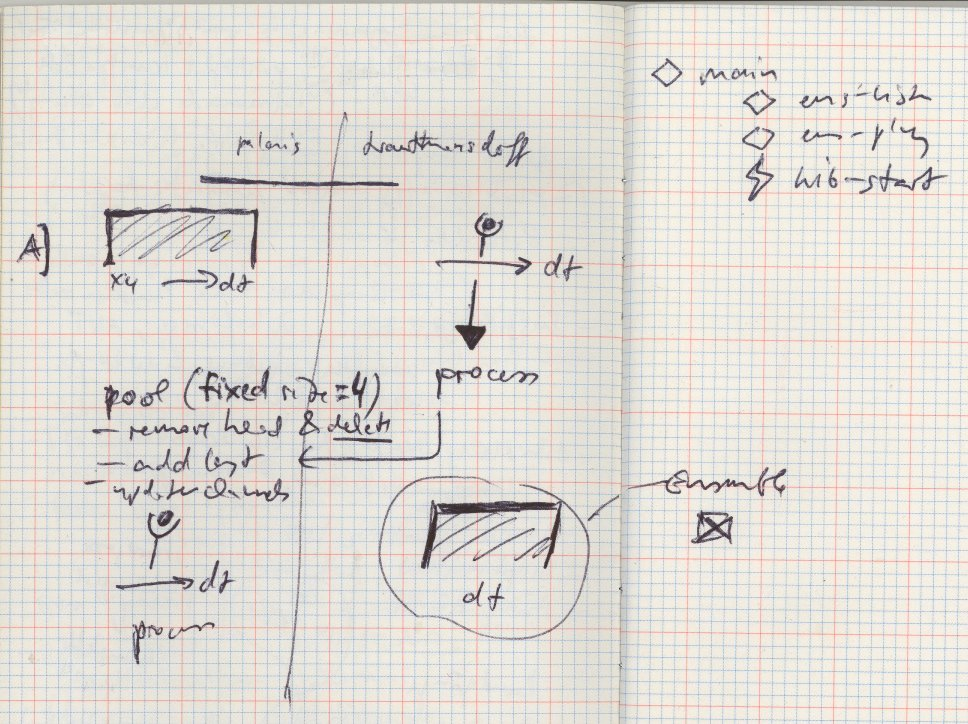 main
ens-list
ens-play
hib-start
A]
x4 → dt
dt
process
pool (fixed size=4)
- remove head & delete
- add last
- update channels
dt
process
dt
Ensemble